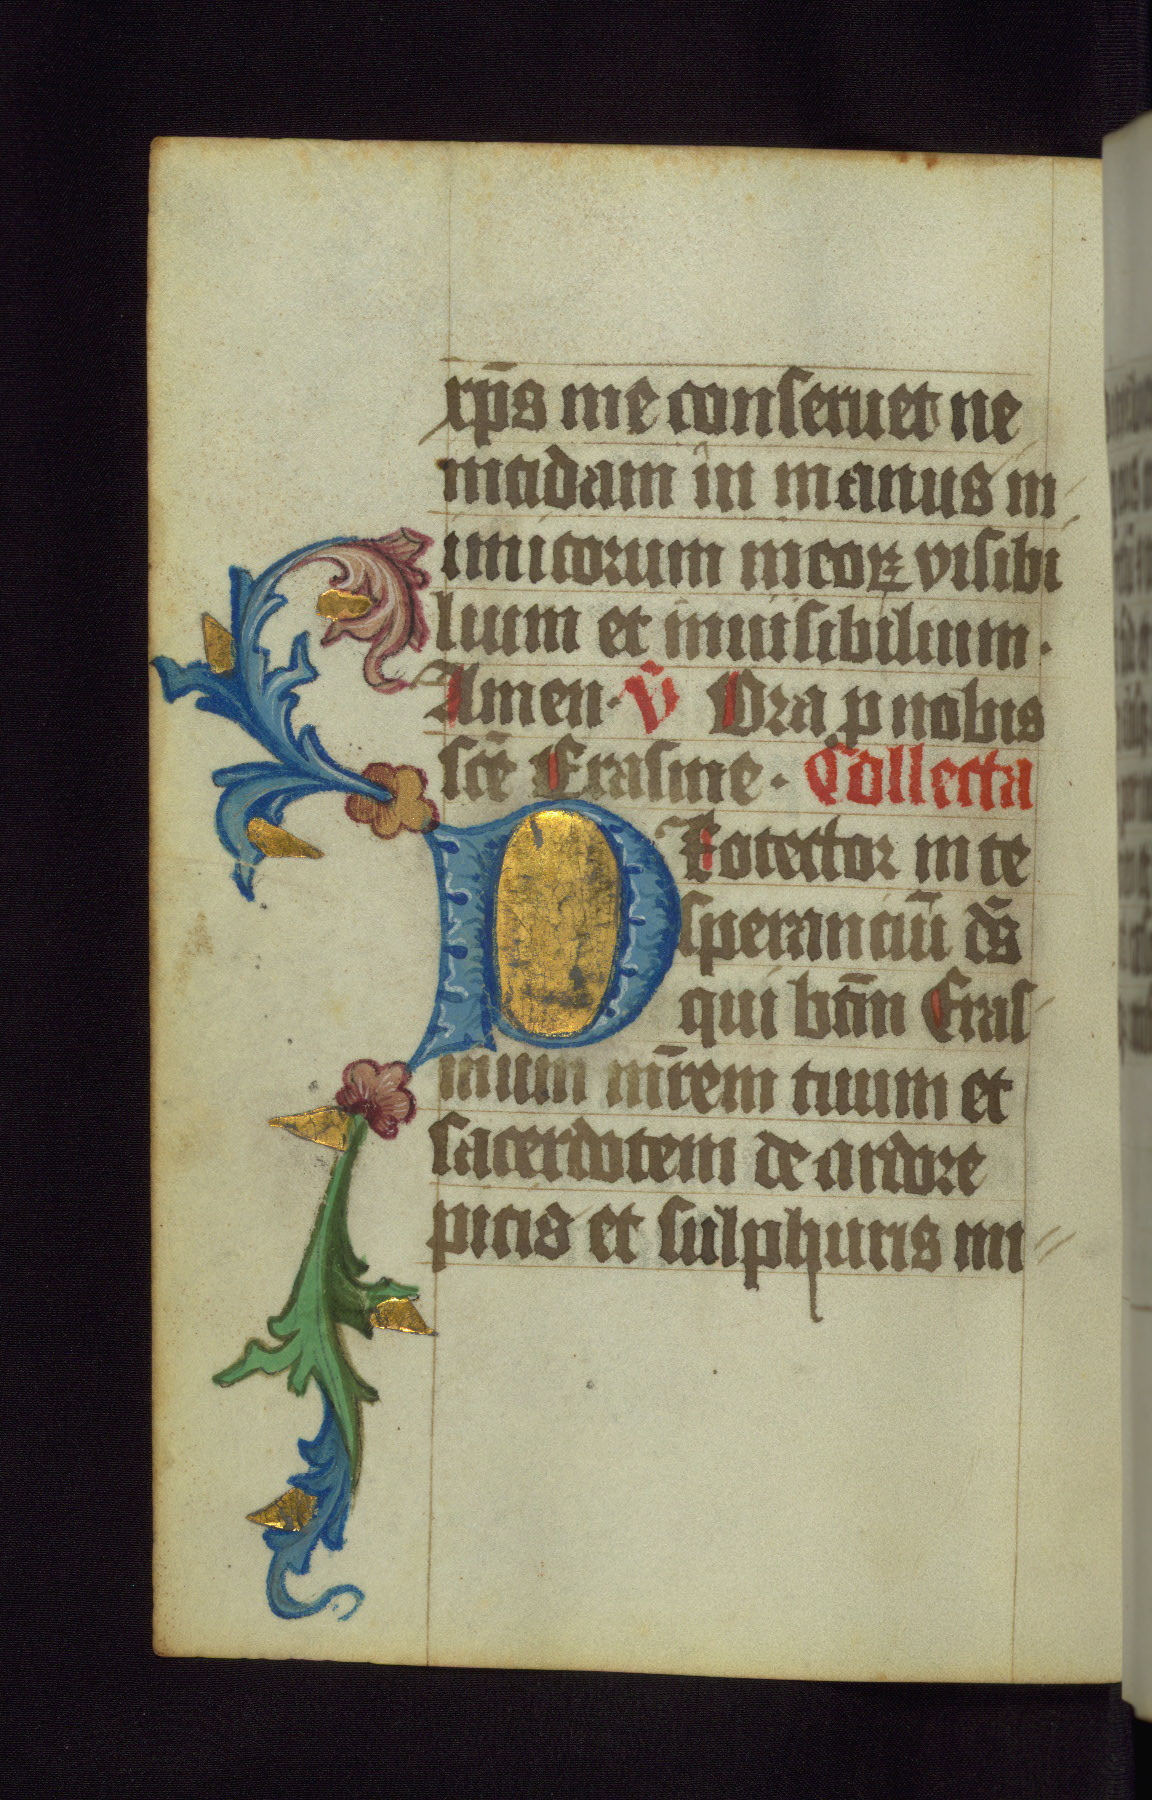 xp̄s me conseruet ne
incidam in manus in
imicorum meoꝝ visibi
lium et inuisibilium.
Amen. V̄ Ora p nobis
scē Erasme. Collecta
Protector in te
speranciū dš
qui btm̄ Eras
mum mr̄em tuum et
sacerdotem de ardore
picis et sulphuris mi